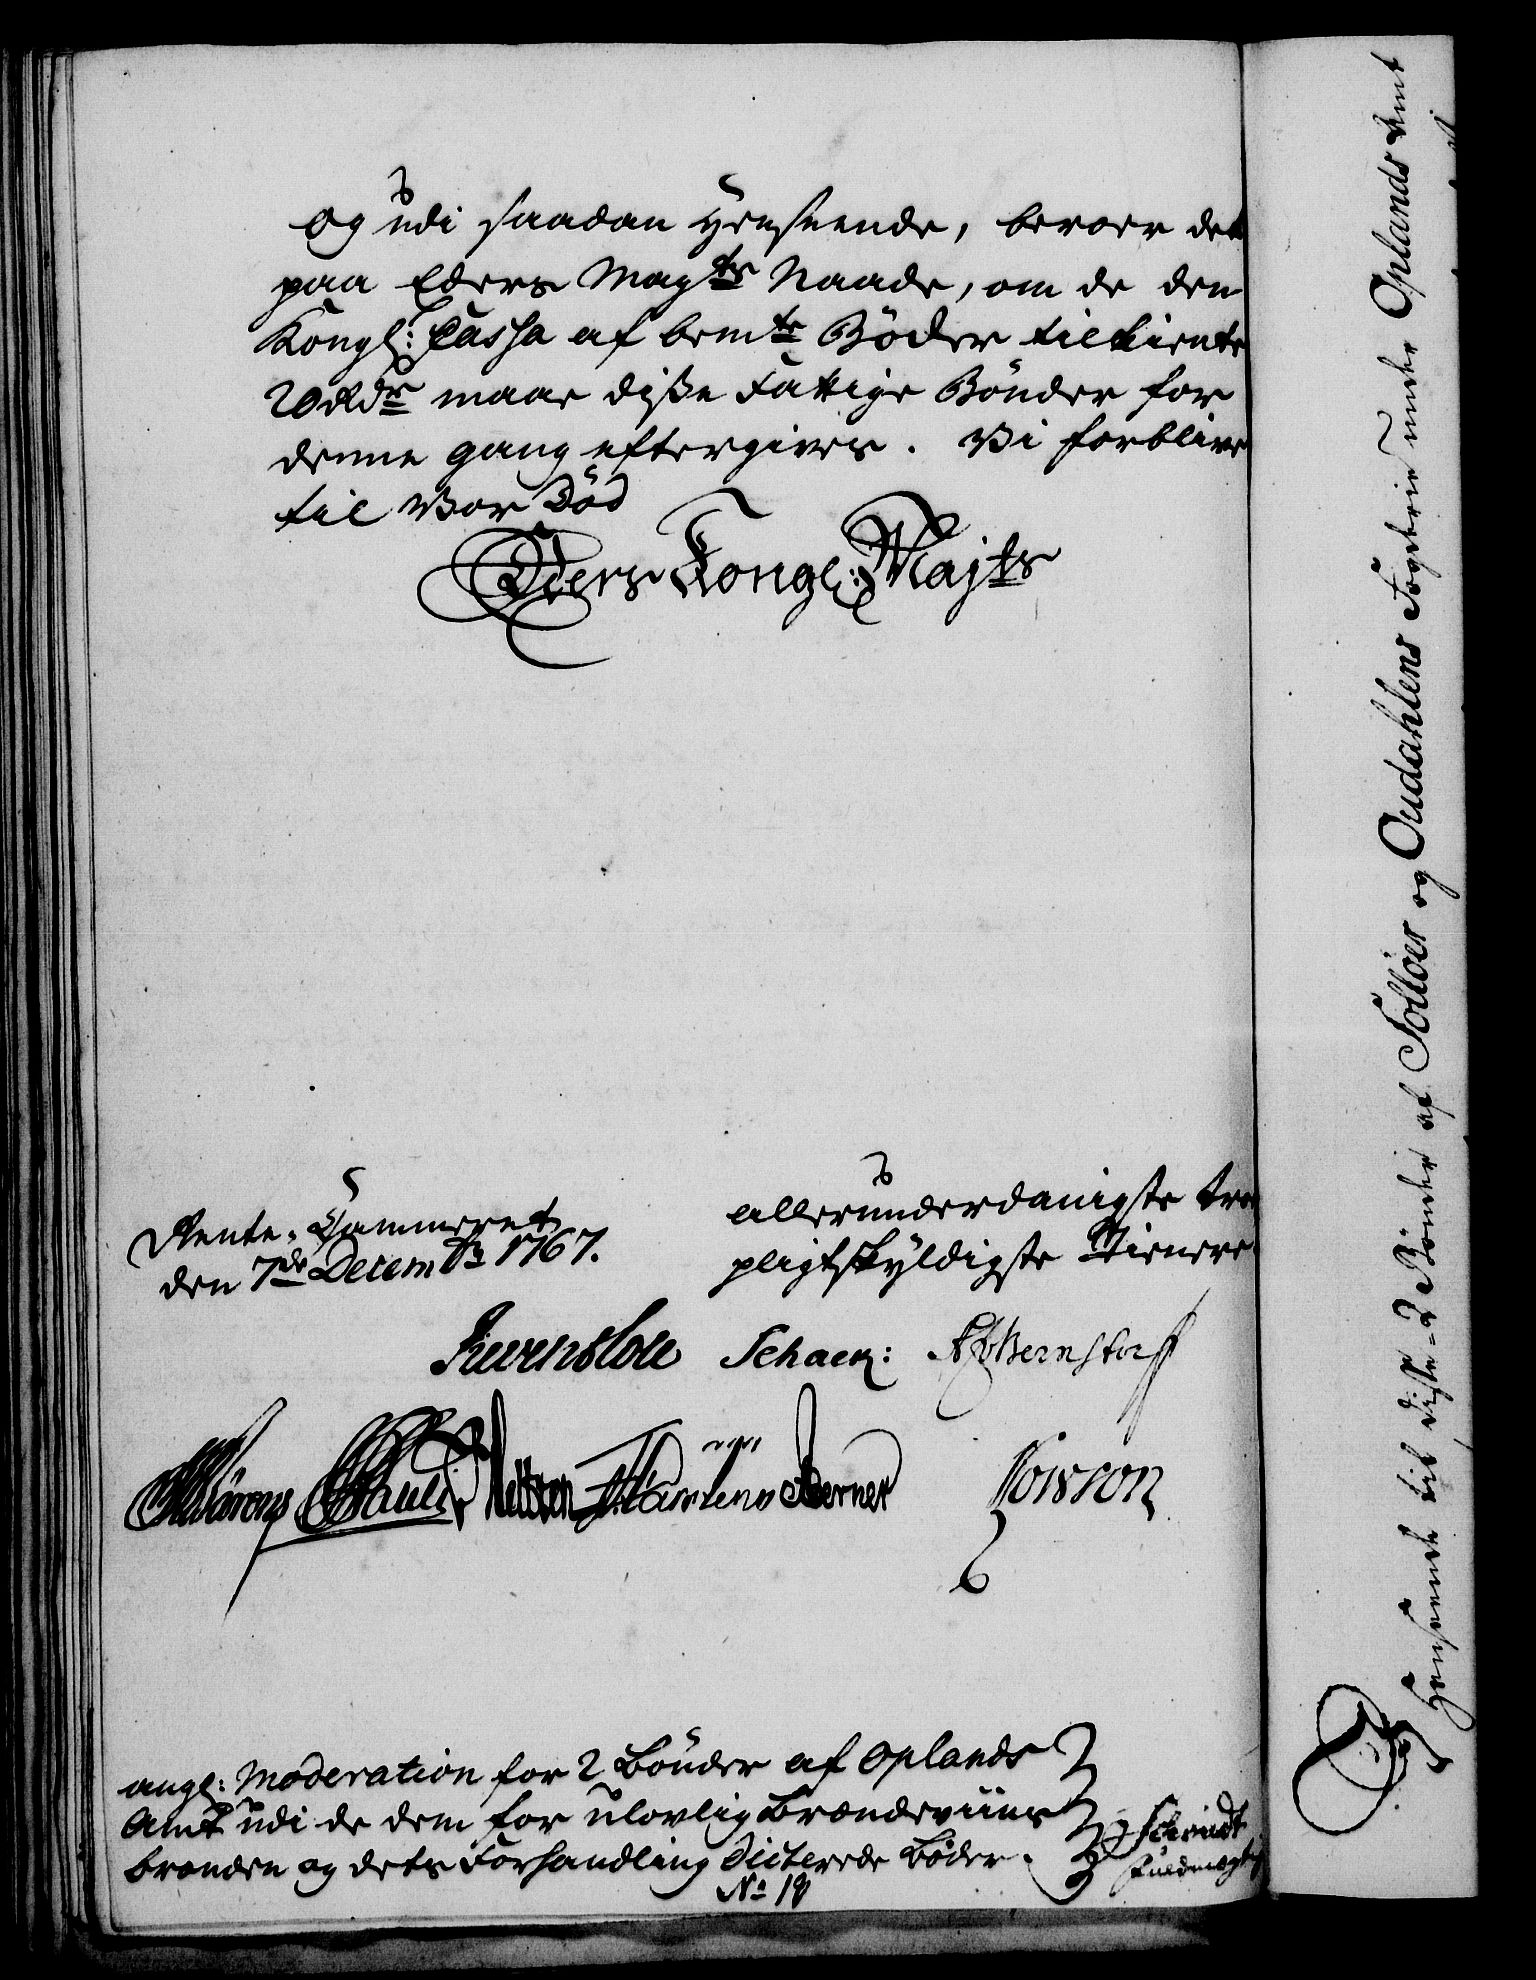 og udi saadan Henseende, beroer det
paa Eders Mayts Naade, om de den
Kongl: Cassa af bemte Bøder tilkiente
20 Rdr maae disse Fattige Bønder for
denne gang eftergives. Vi forblive
til Vor Død
Eders Kongl: Majts
Rente-Cammeret
den 7de Decembr 1767.
allerunderdanigste troe
pligtskyldigste Tienere
Reventlow Schack: Bernstorff
angl: Moderation for 2 Bönder af Oplands
Amt udi de dem for ulovlig Brændeviins
brænden og dets Forhandling dicterede Bøder.
No 18
Schmidt
Fuldmægtig
I
Henseende til disse 2 Bönder af Folloes og Oudahlens Fogderie under Oplands Amt